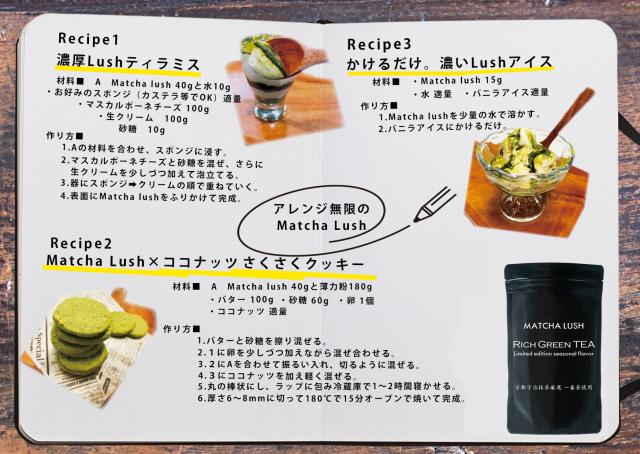 Recipe1
濃厚Lushティラミス
材料■ A Matcha lush 40gと水10g
・お好めのスポンジ（カステラ等でOK）適量
・マスカルポーネチーズ 100g
・生クリーム 100g
砂糖 10g
作り方■
1.Aの材料を合わせ、スポンジに浸す。
2.マスカルポーネチーズと砂糖を混ぜ、さらに
生クリームを少しづつ加えて泡立てる。
3.器にスポンジ➡クリームの順で重ねていく。
4.表面にMatcha lushをふりかけて完成。
Recipe3
かけるだけ。濃いLushアイス
材料■ ・Matcha lush 15g
・水 適量 ・バニラアイス適量
作り方■
1.Matcha lushを少量の水で溶かす。
2.バニラアイスにかけるだけ。
アレンジ無限の
Matcha Lush
Recipe2
Matcha Lush×ココナッツ さくさくクッキー
材料■ A Matcha lush 40gと薄力粉180g
・バター 100g ・砂糖 60g ・卵 1個
・ココナッツ 適量
作り方■
1.バターと砂糖を擦り混ぜる。
2.1に卵を少しづつ加えながら混ぜ合わせる。
3.2にAを合わせて振るい入れ、切るように混ぜる。
4.3にココナッツを加え軽く混ぜる。
5.丸の棒状にし、ラップに包み冷蔵庫で1～2時間寝かせる。
6.厚さ6～8mmに切って180℃で15分オーブンで焼いて完成。
Special
MATCHA LUSH
RICH GREEN TEA
Limited edition seasonal flavor
京都宇治抹茶厳選 一番茶使用